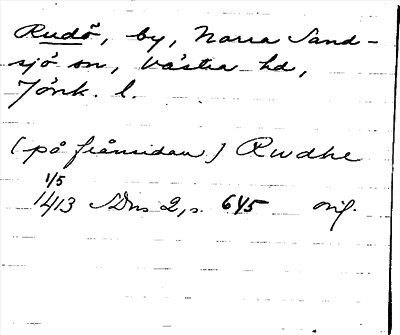 Rudö, by, Norra Sand-
sjö sn, Västra hd,
Jönk. l.
(på frånsidan) Rudhe
1/5
1413 SDns 2, s. 645 orig.